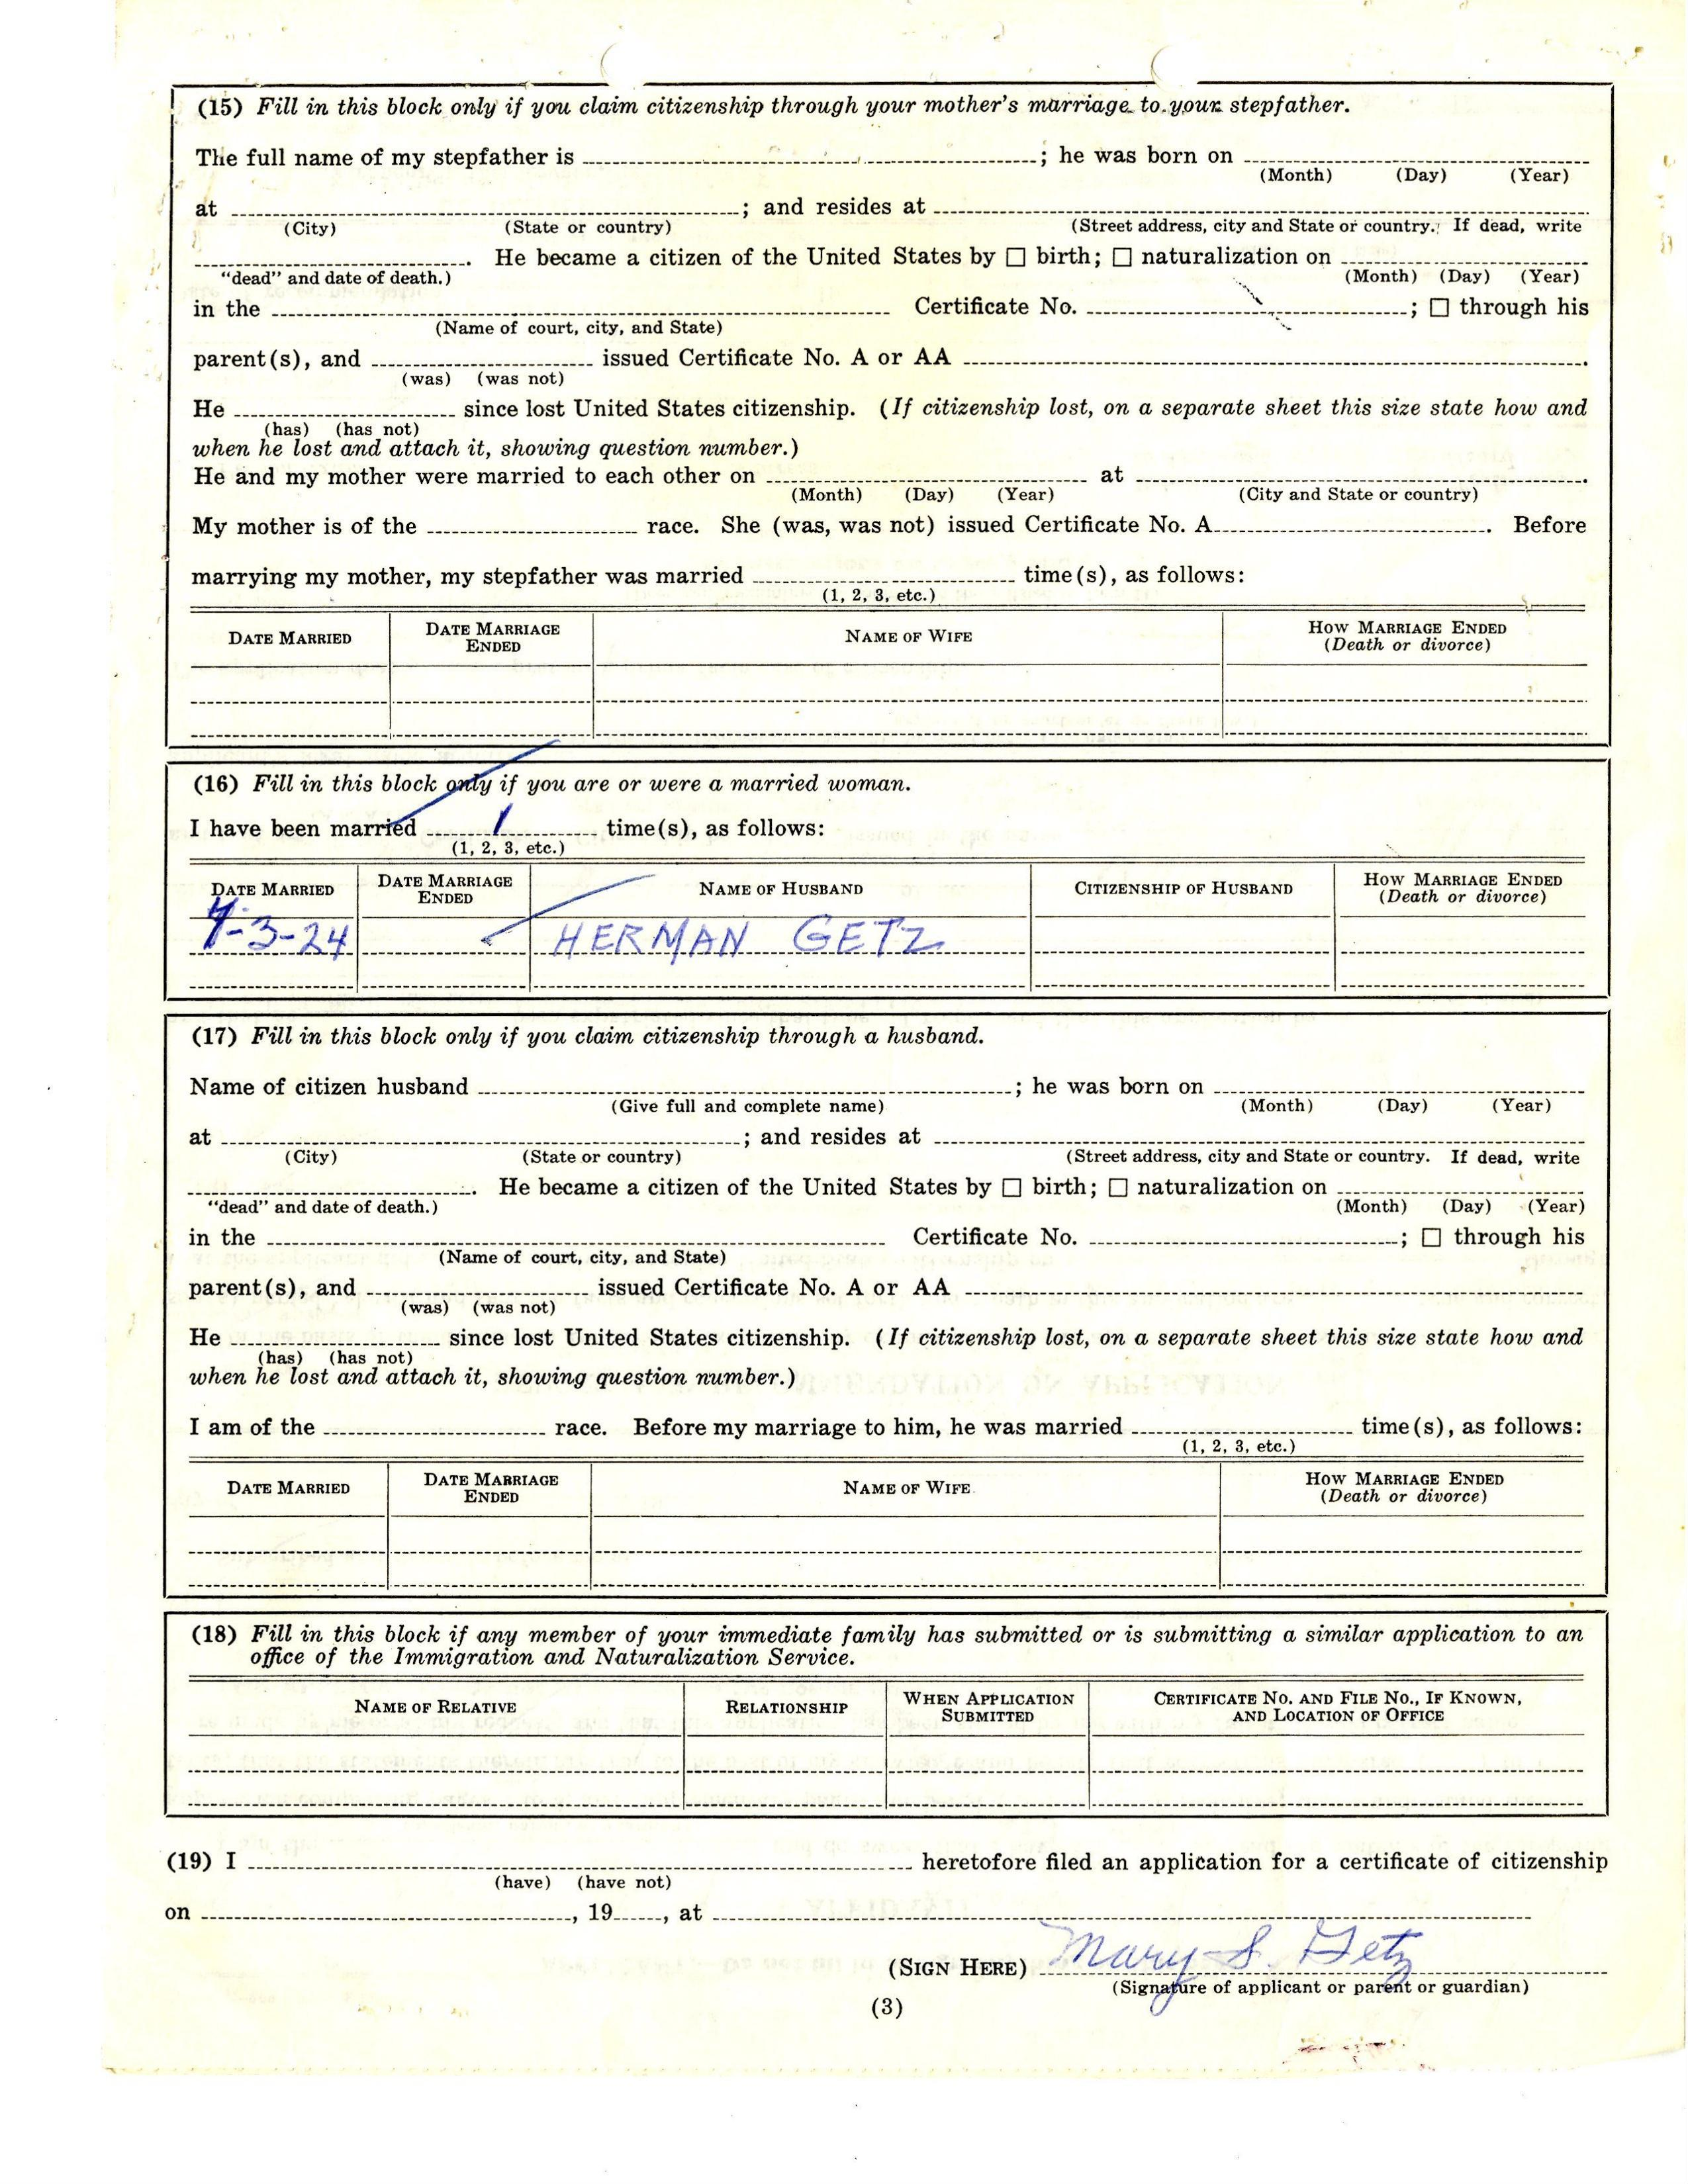 (15) Fill in this block only if you claim citizenship through your mother's marriage to your stepfather.
The full name of my stepfather is ; he was born on
(Month) (Day) (Year)
at ; and resides at
(City) (State or country) (Street address, city and State or country. If dead, write
. He became a citizen of the United States by ☐ birth; ☐ naturalization on
"dead" and date of death.) (Month) (Day) (Year)
in the Certificate No. ; ☐ through his
(Name of court, city, and State)
parent(s), and issued Certificate No. A or AA .
(was) (was not)
He since lost United States citizenship. (If citizenship lost, on a separate sheet this size state how and
(has) (has not)
when he lost and attach it, showing question number.)
He and my mother were married to each other on at .
(Month) (Day) (Year) (City and State or country)
My mother is of the race. She (was, was not) issued Certificate No. A . Before
marrying my mother, my stepfather was married time(s), as follows:
(1, 2, 3, etc.)
DATE MARRIED DATE MARRIAGE ENDED NAME OF WIFE HOW MARRIAGE ENDED (Death or divorce)
(16) Fill in this block only if you are or were a married woman.
I have been married 1 time(s), as follows:
(1, 2, 3, etc.)
DATE MARRIED DATE MARRIAGE ENDED NAME OF HUSBAND CITIZENSHIP OF HUSBAND HOW MARRIAGE ENDED (Death or divorce)
-3-24 HERMAN GETZ
(17) Fill in this block only if you claim citizenship through a husband.
Name of citizen husband ; he was born on
(Give full and complete name) (Month) (Day) (Year)
at ; and resides at
(City) (State or country) (Street address, city and State or country. If dead, write
. He became a citizen of the United States by ☐ birth; ☐ naturalization on
"dead" and date of death.) (Month) (Day) (Year)
in the Certificate No. ; ☐ through his
(Name of court, city, and State)
parent(s), and issued Certificate No. A or AA
(was) (was not)
He since lost United States citizenship. (If citizenship lost, on a separate sheet this size state how and
(has) (has not)
when he lost and attach it, showing question number.)
I am of the race. Before my marriage to him, he was married time(s), as follows:
(1, 2, 3, etc.)
DATE MARRIED DATE MARRIAGE ENDED NAME OF WIFE HOW MARRIAGE ENDED (Death or divorce)
(18) Fill in this block if any member of your immediate family has submitted or is submitting a similar application to an
office of the Immigration and Naturalization Service.
NAME OF RELATIVE RELATIONSHIP WHEN APPLICATION SUBMITTED CERTIFICATE NO. AND FILE NO., IF KNOWN, AND LOCATION OF OFFICE
(19) I heretofore filed an application for a certificate of citizenship
(have) (have not)
on , 19 , at
(SIGN HERE) Mary S. Getz
(Signature of applicant or parent or guardian)
(3)